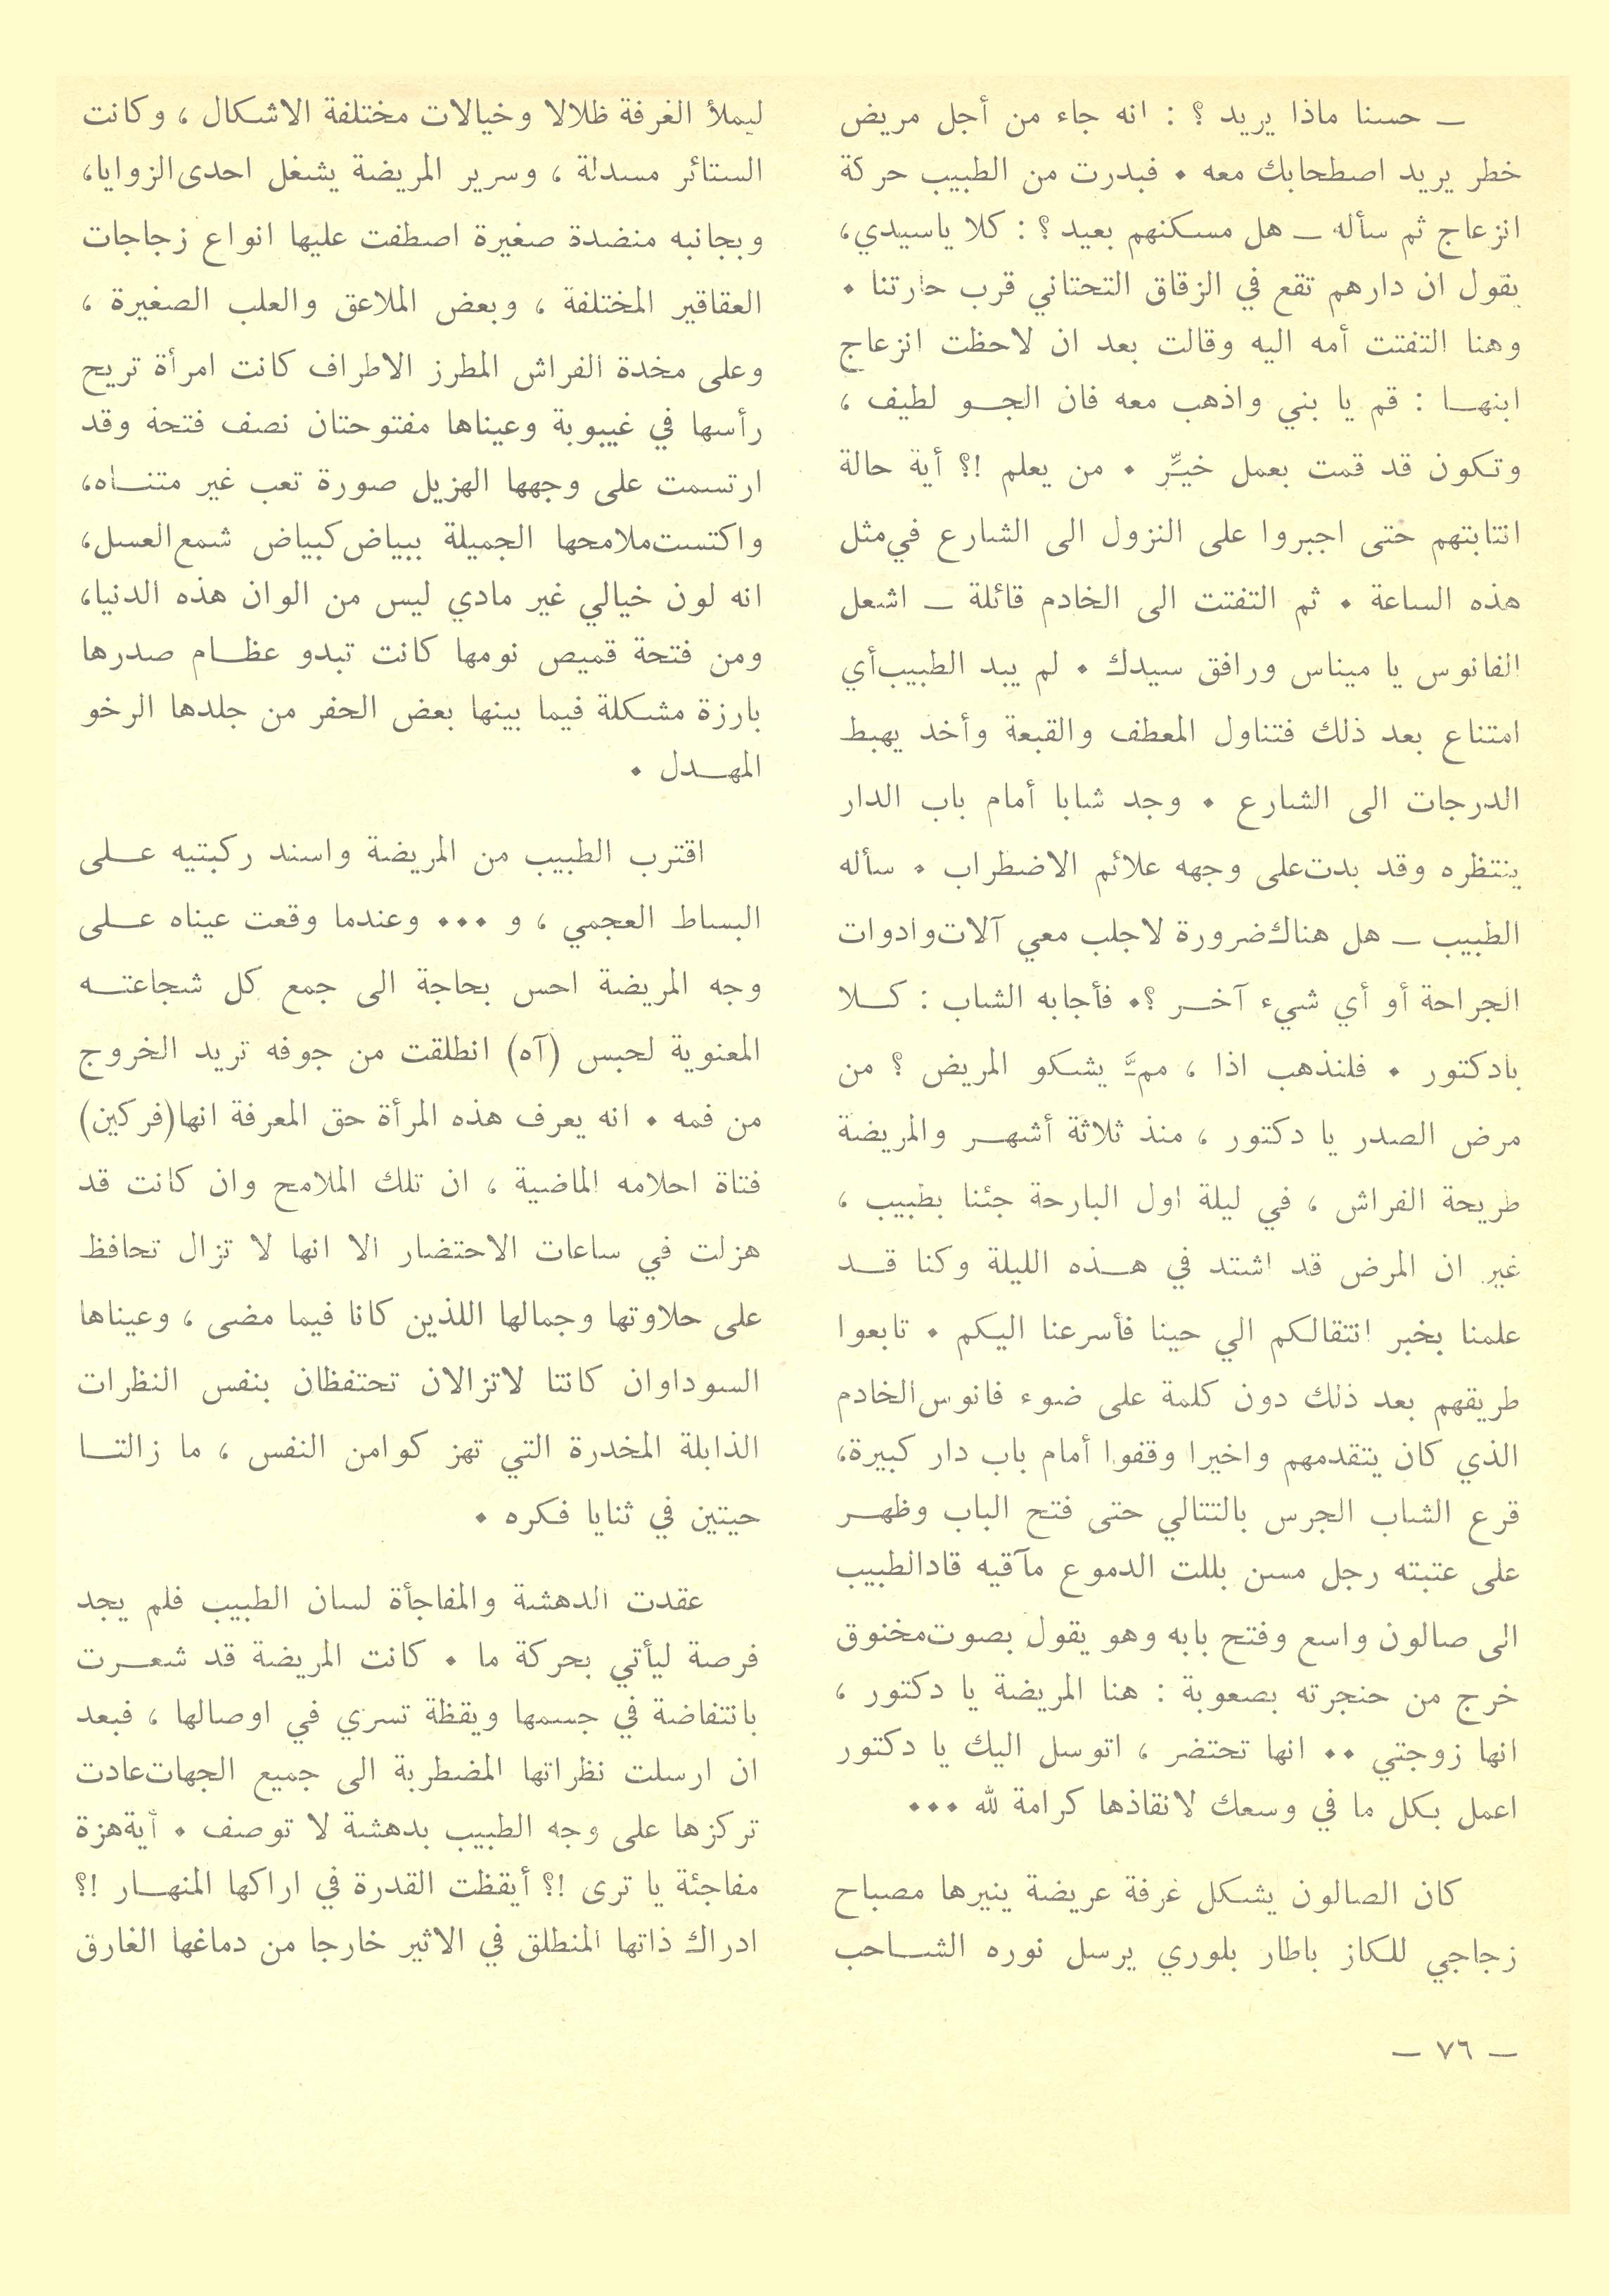 ـ حسنا ماذا يريد ؟ : انه جاء من أجل مريض
خطر يريد اصطحابك معه ٠ فبدرت من الطبيب حركة
انزعاج ثم سأله ـ هل مسكنهم بعيد ؟ : كلا ياسيدي،
يقول ان دارهم تقع في الزقاق التحتاني قرب حارتنا ٠
وهنا التفتت أمه اليه وقالت بعد ان لاحظت انزعاج
ابنهـا : قم يا بني واذهب معه فان الجـو لطيف ،
وتكون قد قمت بعمل خيِّر ٠ من يعلم !؟ أية حالة
انتابتهم حتى اجبروا على النزول الى الشارع في مثل
هذه الساعة ٠ ثم التفتت الى الخادم قائلة ـ اشعل
الفانوس يا ميناس ورافق سيدك ٠ لم يبد الطبيب أي
امتناع بعد ذلك فتناول المعطف والقبعة وأخذ يهبط
الدرجات الى الشارع ٠ وجد شابا أمام باب الدار
ينتظره وقد بدت على وجهه علائم الاضطراب ٠ سأله
الطبيب ـ هل هناك ضرورة لاجلب معي آلات وادوات
الجراحة أو أي شيء آخـر ؟٠ فأجابه الشاب : كـلا
يادكتور ٠ فلنذهب اذا ، ممَّ يشكو المريض ؟ من
مرض الصدر يا دكتور ، منذ ثلاثة أشهـر والمريضة
طريحة الفراش ، في ليلة اول البارحة جئنا بطبيب ،
غير ان المرض قد اشتد في هـذه الليلة وكنا قـد
علمنا بخبر انتقالكم الي حينا فأسرعنا اليكم ٠ تابعوا
طريقهم بعد ذلك دون كلمة على ضوء فانوس الخادم
الذي كان يتقدمهم واخيرا وقفوا أمام باب دار كبيرة،
قرع الشاب الجرس بالتتالي حتى فتح الباب وظهـر
على عتبته رجل مسن بللت الدموع مآقيه قاد الطبيب
الى صالون واسع وفتح بابه وهو يقول بصوت مخنوق
خرج من حنجرته بصعوبة : هنا المريضة يا دكتور ،
انها زوجتي ٠٠ انها تحتضر ، اتوسل اليك يا دكتور
اعمل بكل ما في وسعك لانقاذها كرامة لله ٠٠٠
كان الصالون يشكل غرفة عريضة ينيرها مصباح
زجاجي للكاز باطار بلوري يرسل نوره الشـاحب
ليملأ الغرفة ظلالا وخيالات مختلفة الاشكال ، وكانت
الستائر مسدلة ، وسرير المريضة يشغل احدى الزوايا،
وبجانبه منضدة صغيرة اصطفت عليها انواع زجاجات
العقاقير المختلفة ، وبعض الملاعق والعلب الصغيرة ،
وعلى مخدة الفراش المطرز الاطراف كانت امرأة تريح
رأسها في غيبوبة وعيناها مفتوحتان نصف فتحة وقد
ارتسمت على وجهها الهزيل صورة تعب غير متنـاه،
واكتست ملامحها الجميلة ببياض كبياض شمع العسل،
انه لون خيالي غير مادي ليس من الوان هذه الدنيا،
ومن فتحة قميص نومها كانت تبدو عظـام صدرها
بارزة مشكلة فيما بينها بعض الحفر من جلدها الرخو
المهـدل ٠
اقترب الطبيب من المريضة واسند ركبتيه عـلى
البساط العجمي ، و ٠٠٠ وعندما وقعت عيناه عـلى
وجه المريضة احس بحاجة الى جمع كل شجاعتـه
المعنوية لحبس (آه) انطلقت من جوفه تريد الخروج
من فمه ٠ انه يعرف هذه المرأة حق المعرفة انها(فركين)
فتاة احلامه الماضية ، ان تلك الملامح وان كانت قد
هزلت في ساعات الاحتضار الا انها لا تزال تحافظ
على حلاوتها وجمالها اللذين كانا فيما مضى ، وعيناها
السوداوان كانتا لاتزالان تحتفظان بنفس النظرات
الذابلة المخدرة التي تهز كوامن النفس ، ما زالتـا
حيتين في ثنايا فكره ٠
عقدت الدهشة والمفاجأة لسان الطبيب فلم يجد
فرصة ليأتي بحركة ما ٠ كانت المريضة قد شعـرت
بانتفاضة في جسمها ويقظة تسري في اوصالها ، فبعد
ان ارسلت نظراتها المضطربة الى جميع الجهات عادت
تركزها على وجه الطبيب بدهشة لا توصف ٠ أية هزة
مفاجئة يا ترى !؟ أيقظت القدرة في اراكها المنهـار !؟
ادراك ذاتها المنطلق في الاثير خارجا من دماغها الغارق
ـ ٧٦ ـ